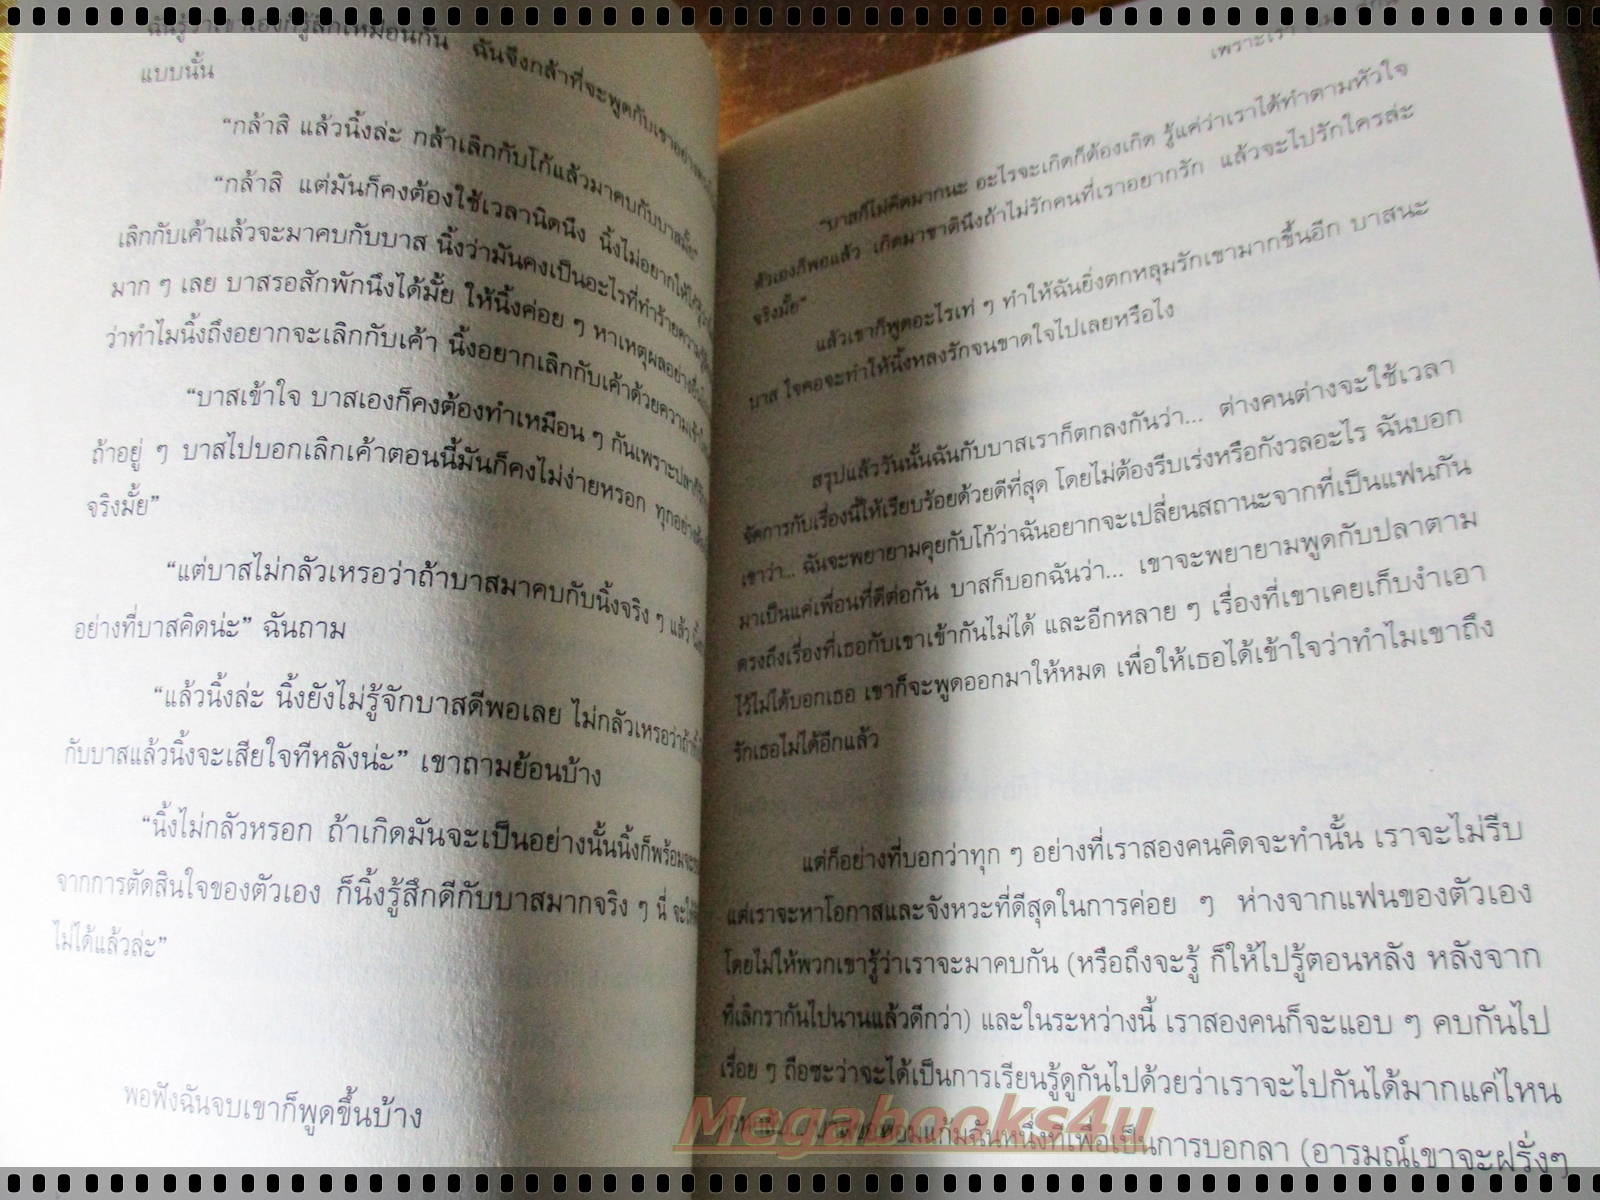 ฉันรู้ว่าเขาเองก็รู้สึกเหมือนกัน ฉันจึงกล้าที่จะพูดกับเขาอย่าง
แบบนั้น
“กล้าสิ แล้วนิ้งล่ะ กล้าเลิกกับโก้แล้วมาคบกับบาสมั้ย”
“กล้าสิ แต่มันก็คงต้องใช้เวลานิดนึง นิ้งไม่อยากให้
เลิกกับเค้าแล้วจะมาคบกับบาส นิ้งว่ามันคงเป็นอะไรที่ทำร้ายความ
มาก ๆ เลย บาสรอสักพักนึงได้มั้ย ให้นิ้งค่อย ๆ หาเหตุผลอย่างอื่น
ว่าทำไมนิ้งถึงอยากจะเลิกกับเค้า นิ้งอยากเลิกกับเค้าด้วยความ
“บาสเข้าใจ บาสเองก็คงต้องทำเหมือน ๆ กันเพราะปลา
ถ้าอยู่ ๆ บาสไปบอกเลิกเค้าตอนนี้มันก็คงไม่ง่ายหรอก ทุกอย่าง
จริงมั้ย”
“แต่บาสไม่กลัวเหรอว่าถ้าบาสมาคบกับนิ้งจริง ๆ แล้ว
อย่างที่บาสคิดน่ะ” ฉันถาม
“แล้วนิ้งล่ะ นิ้งยังไม่รู้จักบาสดีพอเลย ไม่กลัวเหรอว่าถ้า
กับบาสแล้วนิ้งจะเสียใจทีหลังน่ะ” เขาถามย้อนบ้าง
“นิ้งไม่กลัวหรอก ถ้าเกิดมันจะเป็นอย่างนั้นนิ้งก็พร้อมจะ
จากการตัดสินใจของตัวเอง ก็นิ้งรู้สึกดีกับบาสมากจริง ๆ นี่
ไม่ได้แล้วล่ะ”
พอฟังฉันจบเขาก็พูดขึ้นบ้าง
เพราะเรา
“บาสก็ไม่คิดมากนะ อะไรจะเกิดก็ต้องเกิด รู้แค่ว่าเราได้ทำตามหัวใจ
ตัวเองก็พอแล้ว เกิดมาชาตินึงถ้าไม่รักคนที่เราอยากรัก แล้วจะไปรักใครล่ะ
จริงมั้ย”
แล้วเขาก็พูดอะไรเท่ ๆ ทำให้ฉันยิ่งตกหลุมรักเขามากขึ้นอีก บาสนะ
บาส ใจคอจะทำให้นิ้งหลงรักจนขาดใจไปเลยหรือไง
สรุปแล้ววันนั้นฉันกับบาสเราก็ตกลงกันว่า... ต่างคนต่างจะใช้เวลา
จัดการกับเรื่องนี้ให้เรียบร้อยด้วยดีที่สุด โดยไม่ต้องรีบเร่งหรือกังวลอะไร ฉันบอก
เขาว่า... ฉันจะพยายามคุยกับโก้ว่าฉันอยากจะเปลี่ยนสถานะจากที่เป็นแฟนกัน
มาเป็นแค่เพื่อนที่ดีต่อกัน บาสก็บอกฉันว่า... เขาจะพยายามพูดกับปลาตาม
ตรงถึงเรื่องที่เธอกับเขาเข้ากันไม่ได้ และอีกหลาย ๆ เรื่องที่เขาเคยเก็บงำเอา
ไว้ไม่ได้บอกเธอ เขาก็จะพูดออกมาให้หมด เพื่อให้เธอได้เข้าใจว่าทำไมเขาถึง
รักเธอไม่ได้อีกแล้ว
แต่ก็อย่างที่บอกว่าทุก ๆ อย่างที่เราสองคนคิดจะทำนั้น เราจะไม่รีบ
แต่เราจะหาโอกาสและจังหวะที่ดีสุดในการค่อย ๆ ห่างจากแฟนของตัวเอง
โดยไม่ให้พวกเขารู้ว่าเราจะมาคบกัน (หรือถึงจะรู้ ก็ให้ไปรู้ตอนหลัง หลังจาก
ที่เลิกรากันไปนานแล้วดีกว่า) และในระหว่างนี้ เราสองคนก็จะแอบ ๆ คบกันไป
เรื่อย ๆ ถือซะว่าจะได้เป็นการเรียนรู้ดูกันไปด้วยว่าเราจะไปกันได้มากแค่ไหน
หอมแก้มฉันหนึ่งทีเพื่อเป็นการบอกลา (อารมณ์เขาจะฝรั่งๆ
Megabooks4u